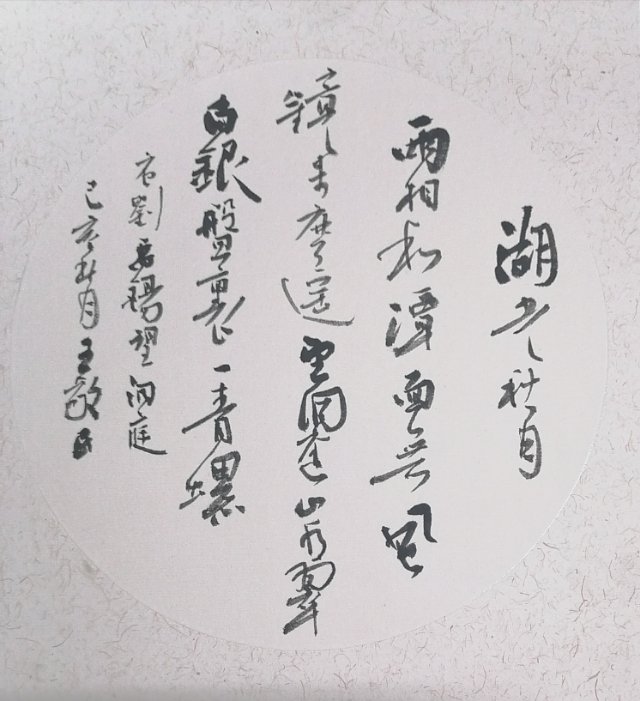 湖光秋月
兩相和潭面無風
鏡未磨遥望洞庭山水翠
白銀盤裏一青螺
唐劉禹錫望洞庭
己亥秋月王敬